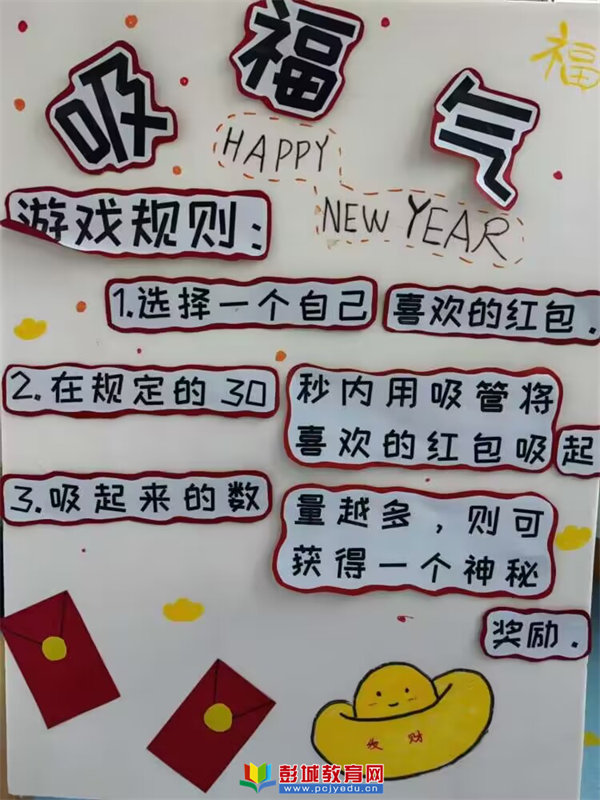 吸福气
福
HAPPY
NEW YEAR
游戏规则:
1.选择一个自己喜欢的红包.
2.在规定的30秒内用吸管将
喜欢的红包吸起
3.吸起来的数量越多,则可
获得一个神秘
奖励.
发财
彭城教育网
www.pcjyedu.cn